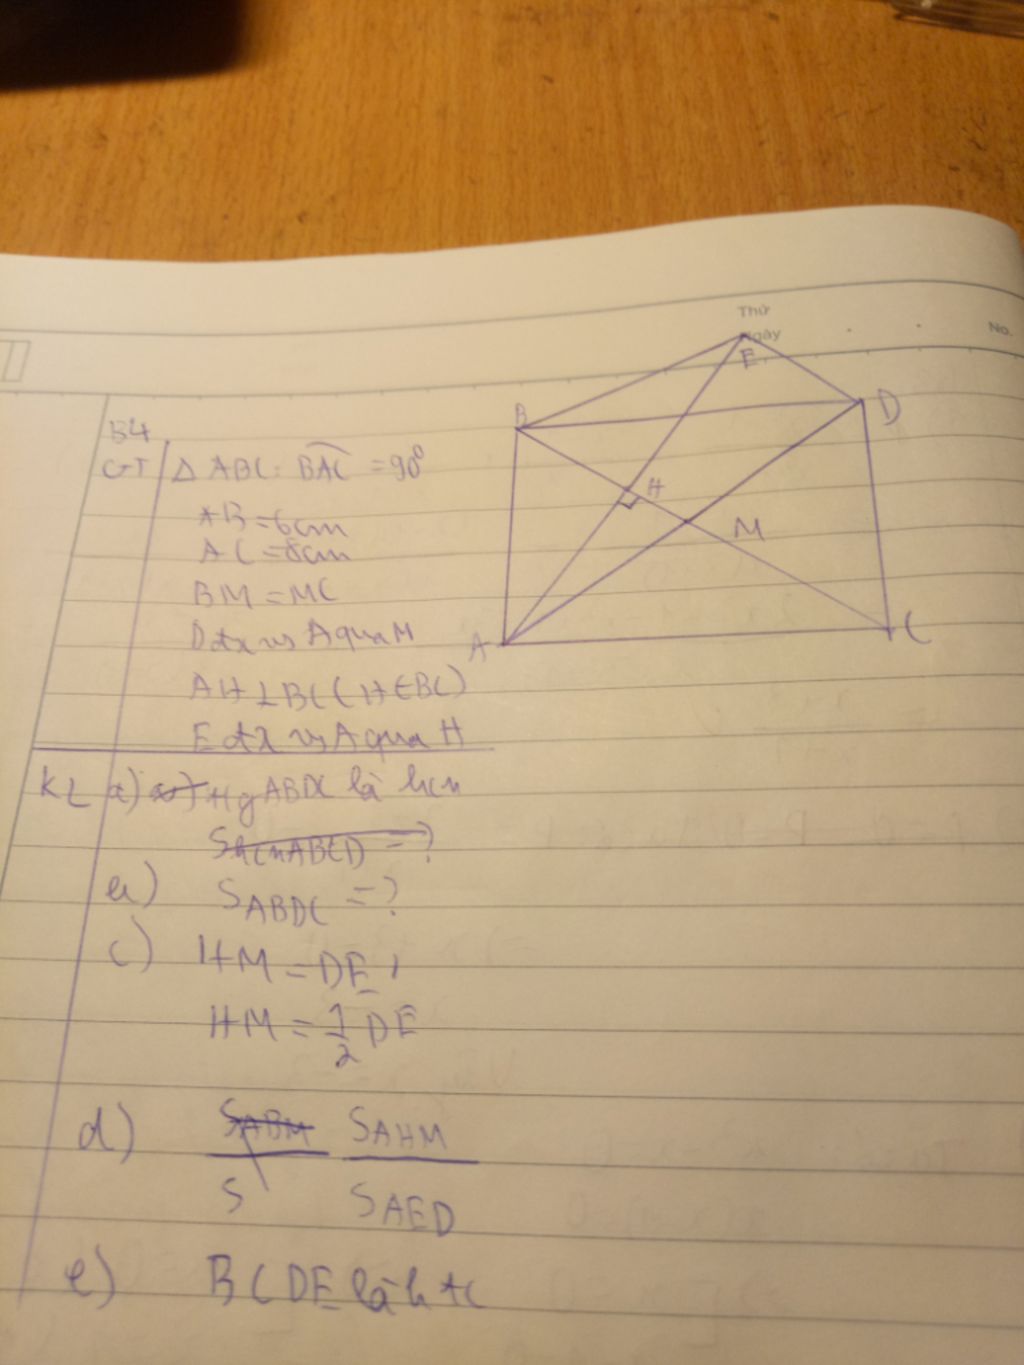 Thứ
Ngày
No.
B4
GT Δ ABC: BAC = 90⁰
AB = 6cm
AC = 8cm
BM = MC
D đx vs A qua M
AH ⊥ BC (H ∈ BC)
E đx vs A qua H
KL a) a) tg ABDC là hcn
ShcnABCD = ?
b) SABDC = ?
c) HM = DE,
HM = 1/2 DE
d) SABM SAHM
S SAED
e) BCDE là htc
B
E
D
H
M
A
C